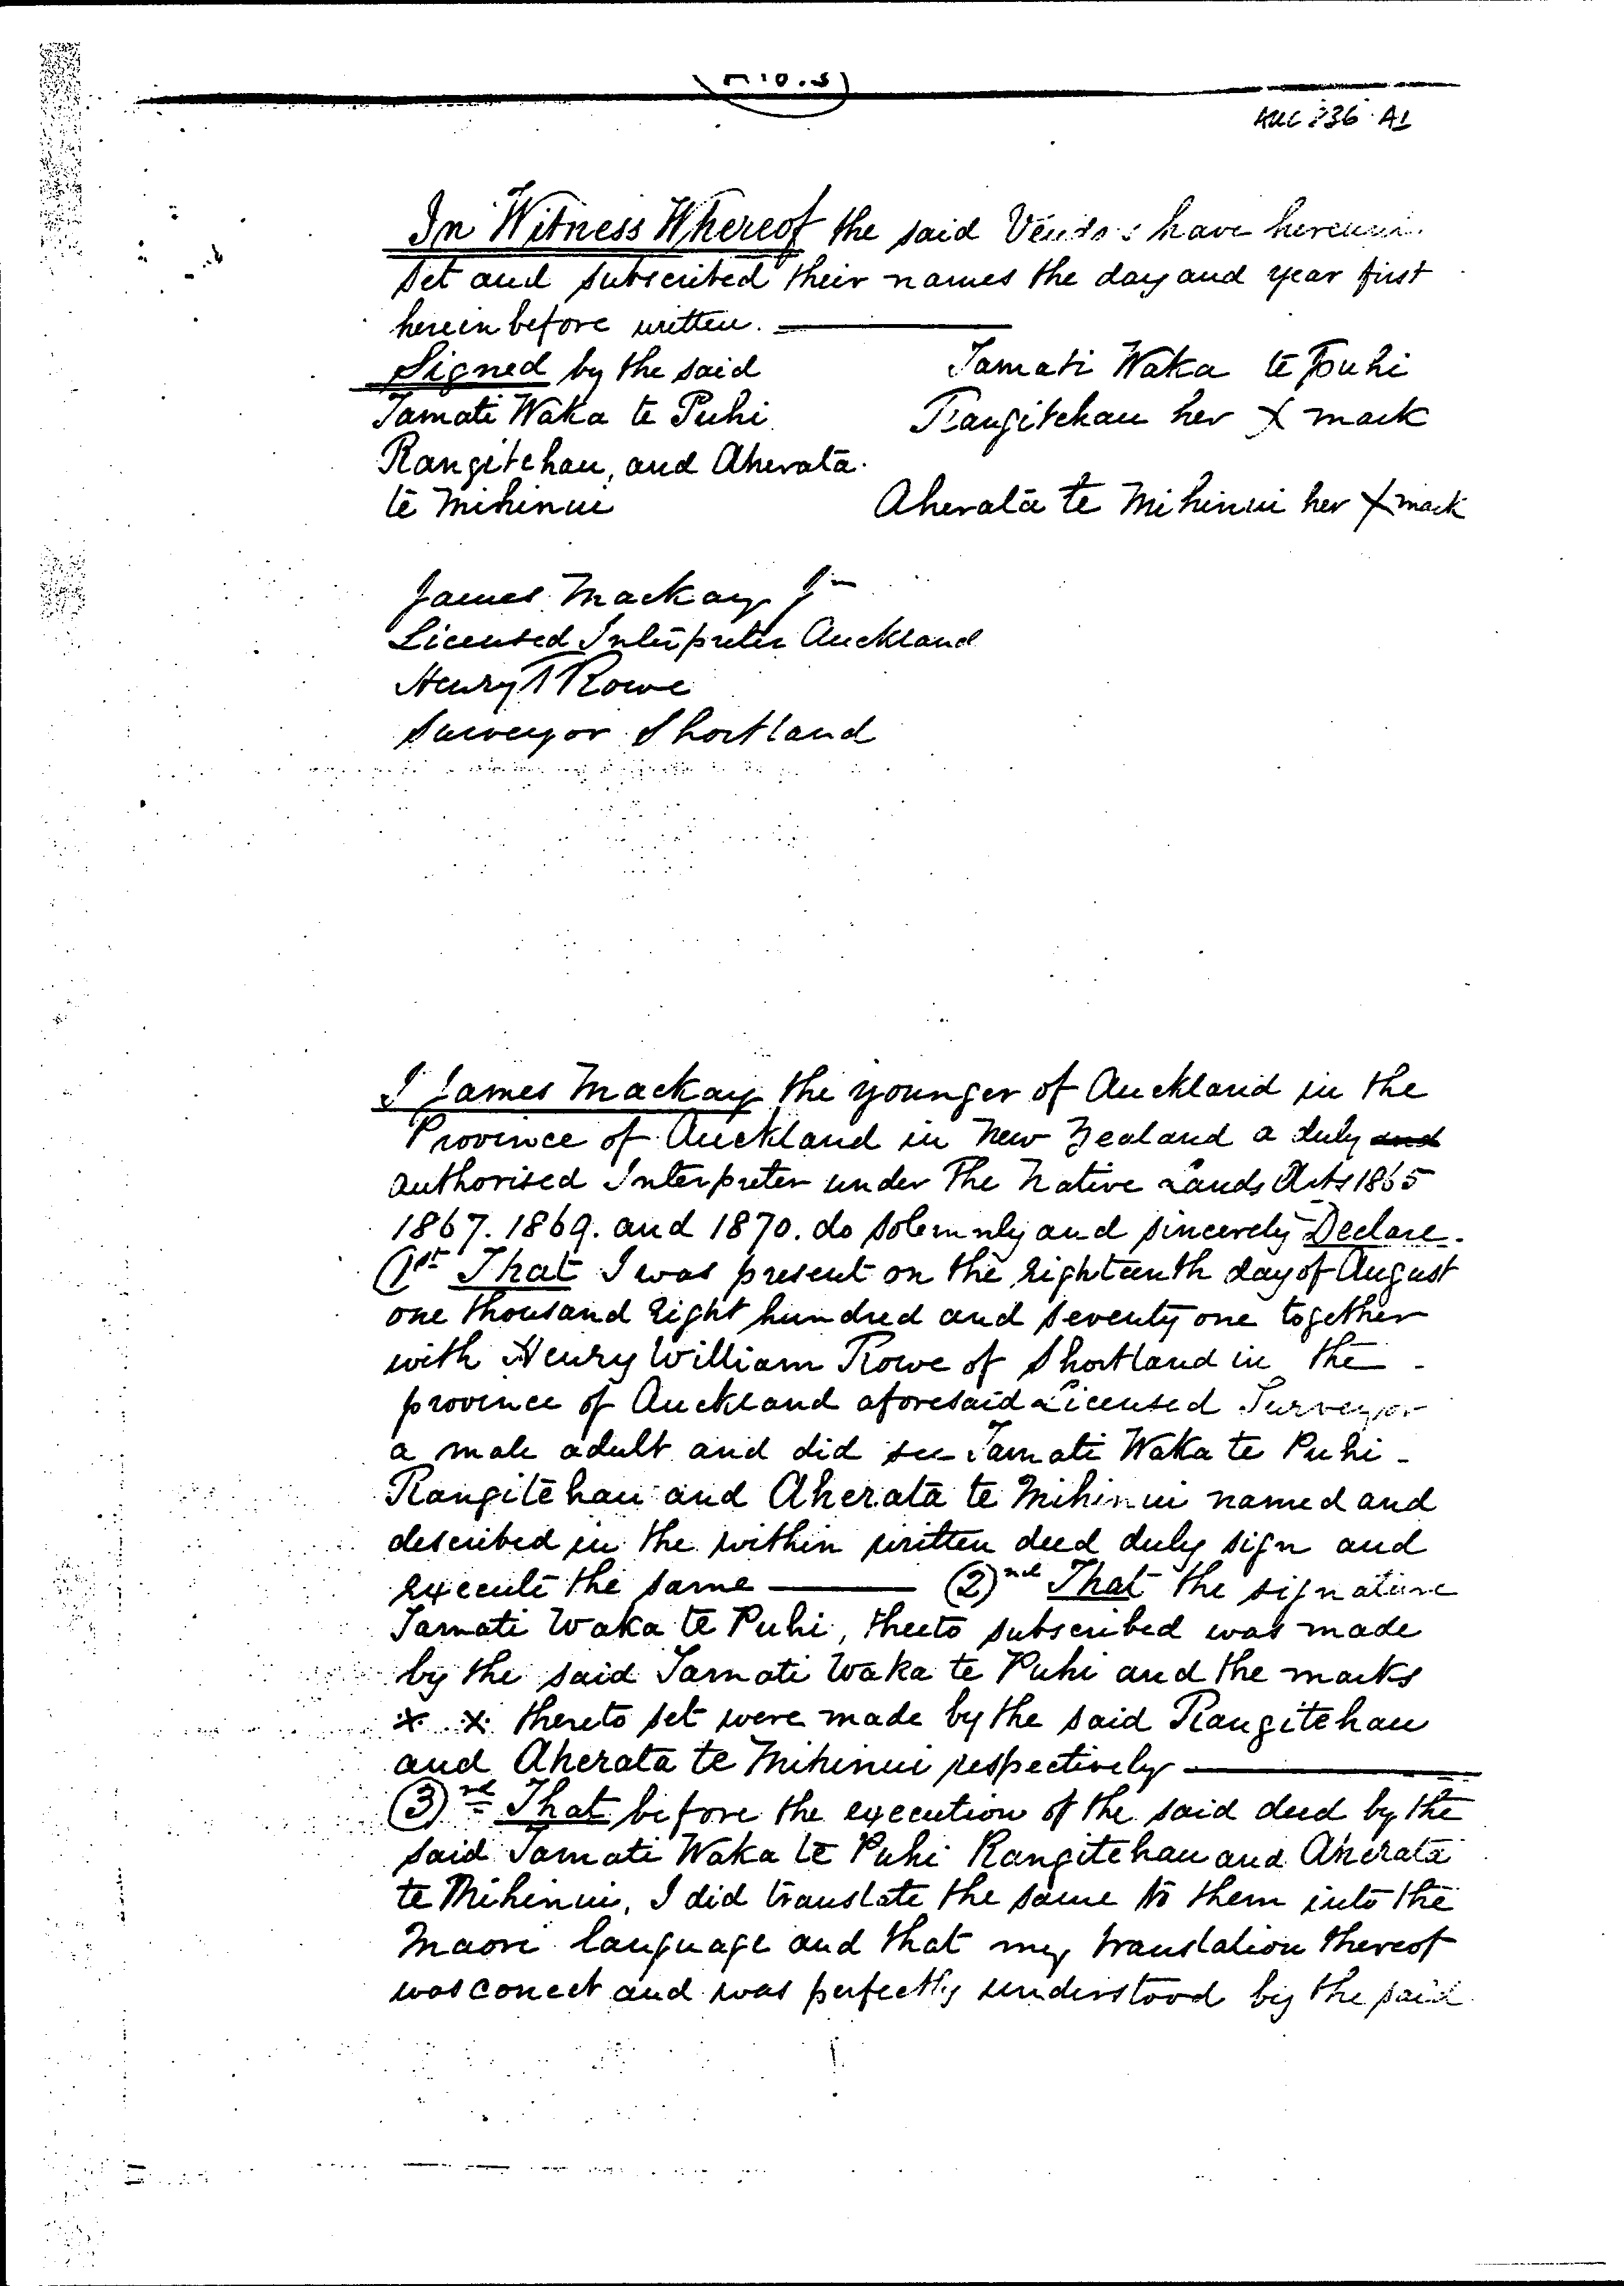 AUC 336 A1
In Witness Whereof the said Vendors have hereunto
set and subscribed their names the day and year first
hereinbefore written.
Signed by the said Tamati Waka te Puhi
Tamati Waka te Puhi Rangitehau her X mark
Rangitehau, and Aherata
te Mihinui Aherata te Mihinui her X mark
James Mackay Jnr
Licensed Interpreter Auckland
Henry Rowe
Surveyor Shortland
I James Mackay the younger of Auckland in the
Province of Auckland in New Zealand a duly and
authorised Interpreter under The Native Lands Acts 1865
1867. 1869. and 1870. do solemnly and sincerely Declare.
1st That I was present on the Eighteenth day of August
one thousand Eight hundred and seventy one together
with Henry William Rowe of Shortland in the
province of Auckland aforesaid Licensed Surveyor
a male adult and did see Tamati Waka te Puhi
Rangitehau and Aherata te Mihinui named and
described in the within written deed duly sign and
execute the same (2)nd That the signature
Tamati Waka te Puhi, theeto subscribed was made
by the said Tamati Waka te Puhi and the marks
X X thereto set were made by the said Rangitehau
and Aherata te Mihinui respectively
(3)rd That before the execution of the said deed by the
said Tamati Waka te Puhi Rangitehau and Aherata
te Mihinui, I did translate the same to them into the
Maori language and that my translation thereof
was correct and was perfectly understood by the said